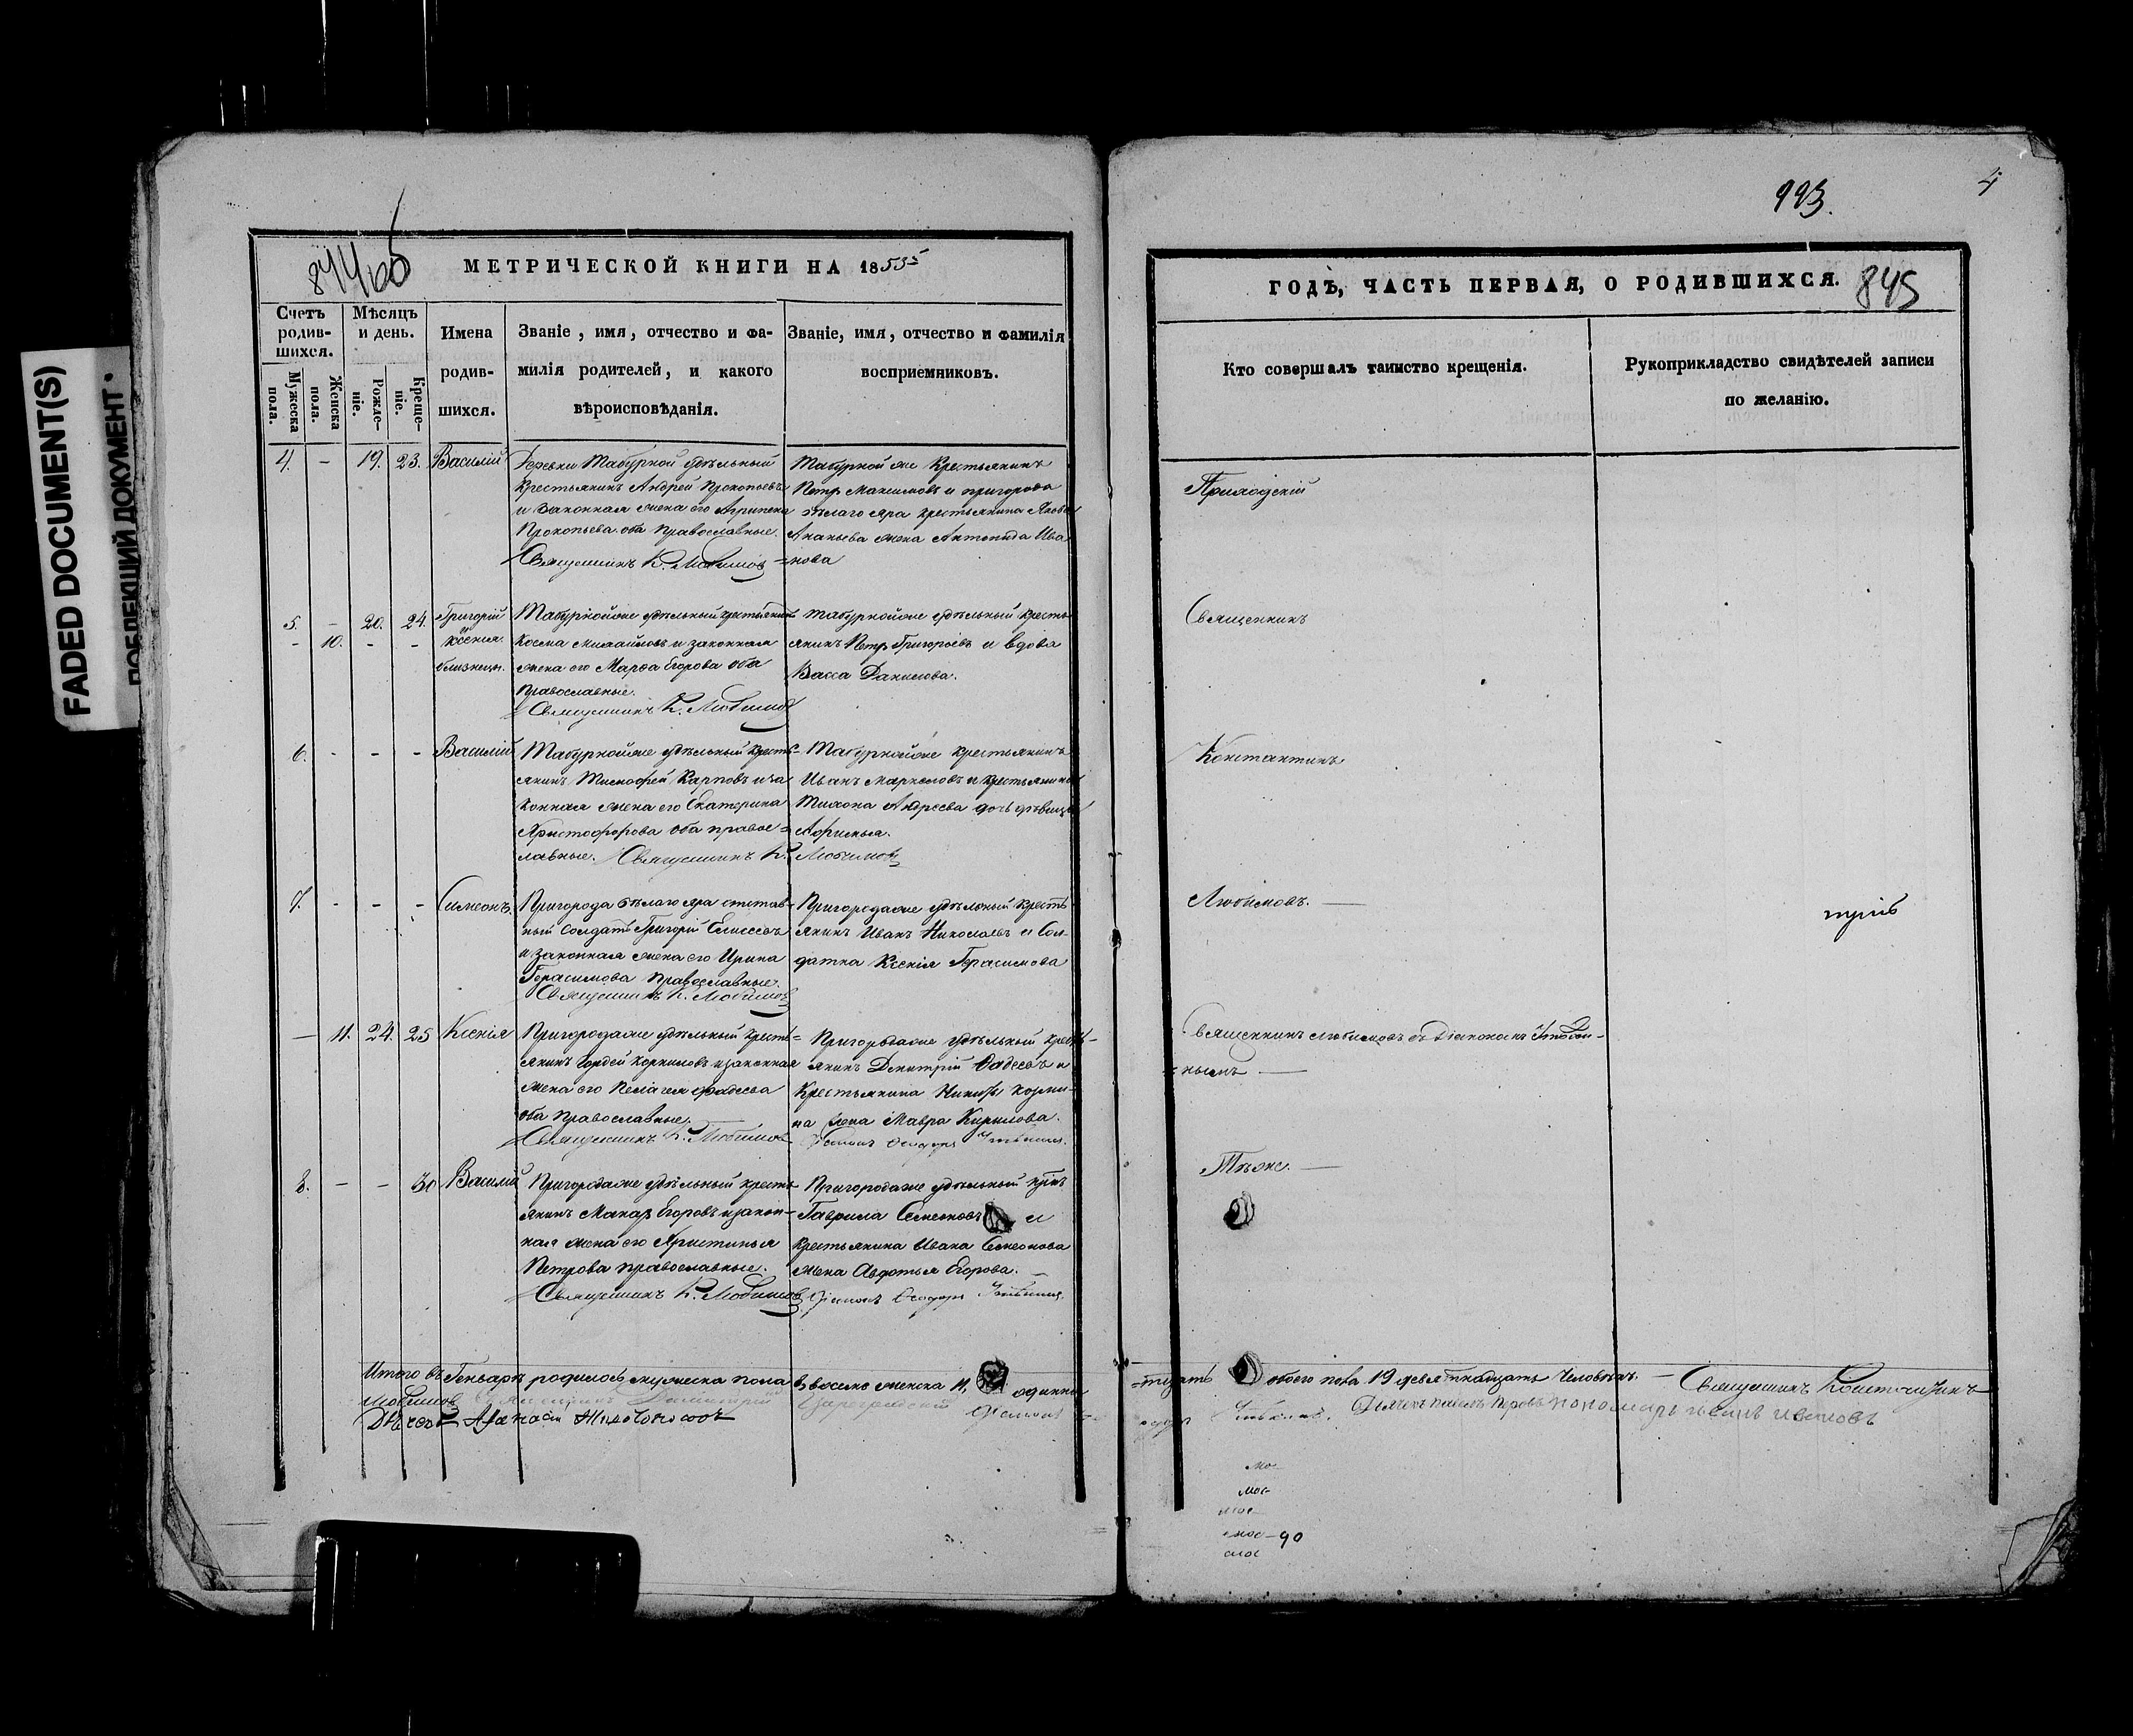 FADED DOCUMENT(S)
ДОКУМЕНТ •
844 об
МЕТРИЧЕСКОЙ КНИГИ НА 1855
Счетъ родившихся.
Мужеска пола.
Женска пола.
Мѣсяцъ и день.
Рожденіе.
Крещеніе.
Имена родившихся.
Званіе, имя, отчество и фамилія родителей, и какого вѣроисповѣданія.
Званіе, имя, отчество и фамилія восприемниковъ.
4. – 19. 23. Василій
Деревни Табурной удѣльный
крестьянинъ Андрей Прокопьевъ
и законная жена его Агрипена
Прокопьева оба православные.
Священникъ К. Любимов
Табурной же крестьянинъ
Петр Максимовъ и пригорода
бѣлаго яра крестьянина Якова
Ананьева жена Антонида Ива
=нова
5. – 20. 24. Григорій
- 10. - - Ксенія.
близнецы.
Табурнойже удѣльный крестьянинъ
Косма Михайловъ и законная
жена его Марѳа Егорова оба
православные.
Священникъ К. Любимов
Табурнойже удѣльный кресть-
янинъ Петр Григорьевъ и вдова
Васса Данилова.
6. - - - Василій
Табурнойже удѣльный кресть-
янинъ Тимофей Карповъ и за
конная жена его Екатерина
Христофорова оба правос=
лавные. Священникъ К. Любимов
Табурнойже крестьянинъ
Иванъ Маркеловъ и крестьянина
Тихона Андреева дочь дѣвица
Афимья.
7. - - - Симеонъ.
Пригорода бѣлаго яра отстав-
ный солдатъ Григорій Елисеевъ
и законная жена его Ирина
Герасимова православные.
Священникъ К. Любимов
Пригородаже удѣльный кресть
янинъ Иванъ Николаевъ и Сол-
датка Ксенія Герасимова
– 11. 24. 25 Ксенія
Пригородаже удѣльный кресть=
янинъ Гордей Корниловъ и законная
жена его Пелагея Фадеева
оба православные.
Священникъ К. Любимов
Пригородаже удѣльный кресть-
янинъ Димитрій Фадеевъ и
крестьянина Никиты Козми-
на жена Мавра Кирилова.
8. – – 30 Василій
Пригородаже удѣльный кресть-
янинъ Макар Егоровъ и закон-
ная жена его Христинья
Петрова православные.
Священникъ К. Любимов
Пригородаже удѣльный
Гаврила Семеновъ и
крестьянина Ивана Семенова
жена Авдотья Егорова.
Итого въ Генварѣ родилось мужеска пола 8 восемь женска 11, одинна
Любимов
993.
4
ГОДЪ, ЧАСТЬ ПЕРВАЯ, О РОДИВШИХСЯ.
845
Кто совершалъ таинство крещенія.
Рукоприкладство свидѣтелей записи по желанію.
Приходскій
Священникъ
Константинъ
Любимовъ. —
Священникъ Любимовъ съ Діакономъ
=нымъ —
Тѣже. —
=тцать обоего пола 19 девятнадцать человѣкъ. — Священникъ Константинъ
пономарь